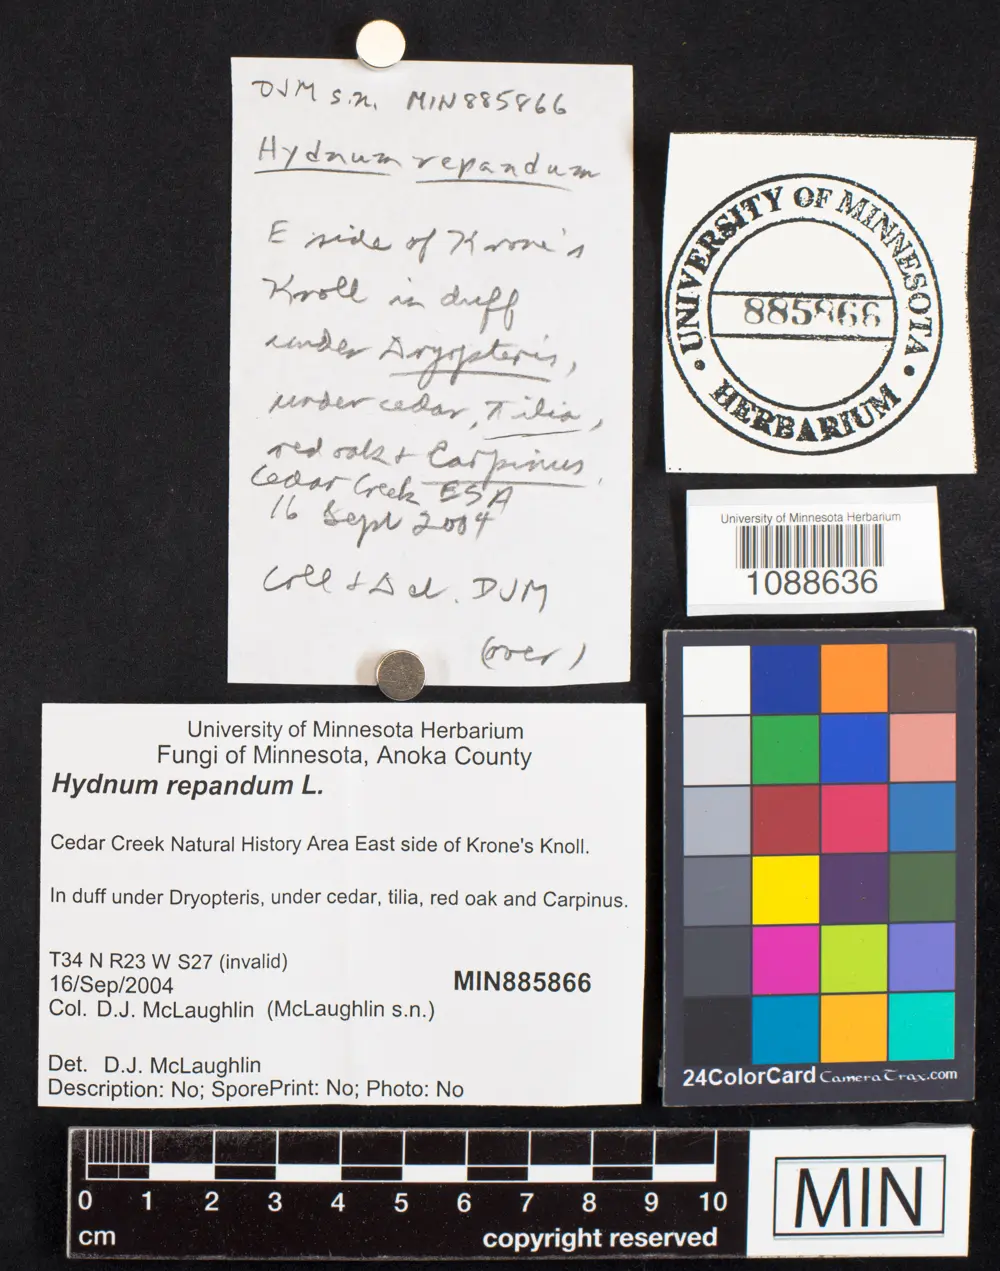 DJM s.n. MIN885866
Hydnum repandum
E side of Krone's
Knoll in duff
under Dryopteris,
under cedar, Tilia,
red oak + Carpinus,
Cedar Creek ESA
16 Sept 2004
Coll + Det. DJM
(over)
UNIVERSITY OF MINNESOTA
885866
• HERBARIUM •
University of Minnesota Herbarium
1088636
University of Minnesota Herbarium
Fungi of Minnesota, Anoka County
Hydnum repandum L.
Cedar Creek Natural History Area East side of Krone's Knoll.
In duff under Dryopteris, under cedar, tilia, red oak and Carpinus.
T34 N R23 W S27 (invalid)
16/Sep/2004
MIN885866
Col. D.J. McLaughlin (McLaughlin s.n.)
Det. D.J. McLaughlin
Description: No; SporePrint: No; Photo: No
24ColorCard CameraTrax.com
0 1 2 3 4 5 6 7 8 9 10
cm copyright reserved
MIN